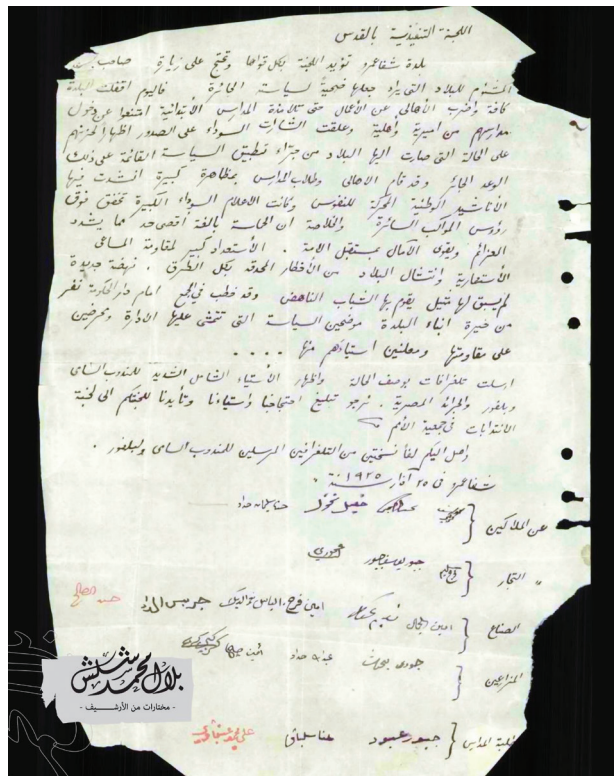 اللجنة التنفيذية بالقدس
بلدة شفاعمرو تؤيد اللجنة بكل قواها وتحتج على زيارة صاحب
المشؤم للبلاد التي يراد جعلها ضحية لسياسته الجائرة فاليوم اقفلت البلدة
كافة واضرب الاهالي عن الاعمال حتى تلامذة المدارس الأبتدائية امتنعوا عن دخول
مدارسهم من اميرية وأهلية وعلقت الشارات السوداء على الصدور اظهارا لحزنهم
على الحالة التي صارت اليها البلاد من جراء تطبيق السياسة القائمة على ذلك
الوعد الجائر وقد قام الاهالي وطلاب المدارس بمظاهرة كبيرة انشدت فيها
الأناشيد الوطنية المحركة للنفوس وكانت الاعلام السوداء الكبيرة تخفق فوق
رؤوس المواكب السائرة والخلاصة ان الحماسة بالغة اقصى حد مما يشدد
العزائم ويقوي الآمال بمستقبل الامة . الأستعداد كبير لمقاومة المساعي
الأستعمارية وانتشال البلاد من الأخطار المحدقة بكل الطرق . نهضة جديدة
لم يسبق لها مثيل يقوم بها الشباب الناهض وقد خطب في الجمع امام دار الحكومة نفر
من خيرة ابناء البلدة موضحين السياسة التي تتمشى عليها الادارة ومحرضين
على مقاومتها ومعلنين استياءهم منها . . . .
ارسلت تلغرافات بوصف الحالة واظهار الأستياء الشامل الشديد للمندوب السامي
وبلفور والجرائد المصرية . نرجو تبليغ احتجاجنا واستياءنا وتأييدنا للجنتكم الى لجنة
الانتدابات في جمعية الأمم
واصل اليكم لفا نسختين من التلغرافين المرسلين للمندوب السامي ولبلفور .
شفاعمرو في ٢٥ آذار سنة ١٩٢٥
عن الملاكين { حنا سليمان حداد
" التجار { جبور يوسف جبور خوري
الصناع { امين فرح جريس الحداد حسن الصالح
المزارعين { عبدالله حداد
طلبة المدارس { جبور عبود حنا سلباق
بلال محمد شلش
- مختارات من الأرشيف -